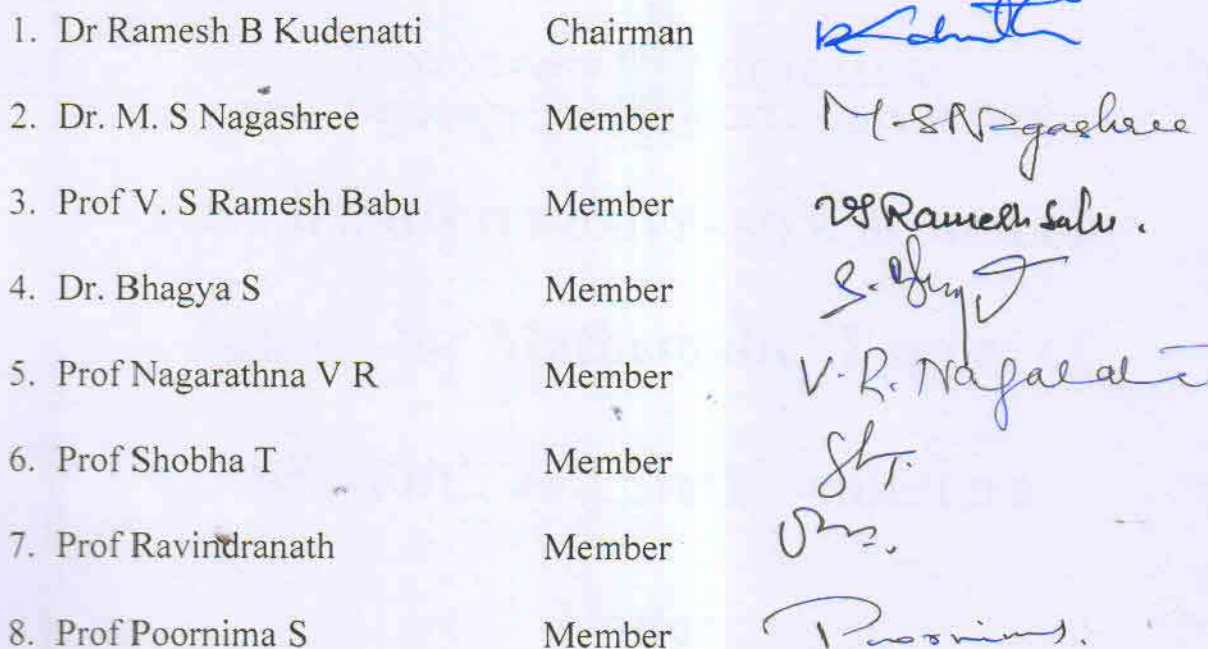 1. Dr Ramesh B Kudenatti Chairman
2. Dr. M. S Nagashree Member M.S Nagashree
3. Prof V. S Ramesh Babu Member VS Ramesh Babu.
4. Dr. Bhagya S Member
5. Prof Nagarathna V R Member V. R. Nagarat
6. Prof Shobha T Member
7. Prof Ravindranath Member
8. Prof Poornima S Member Poornima S.